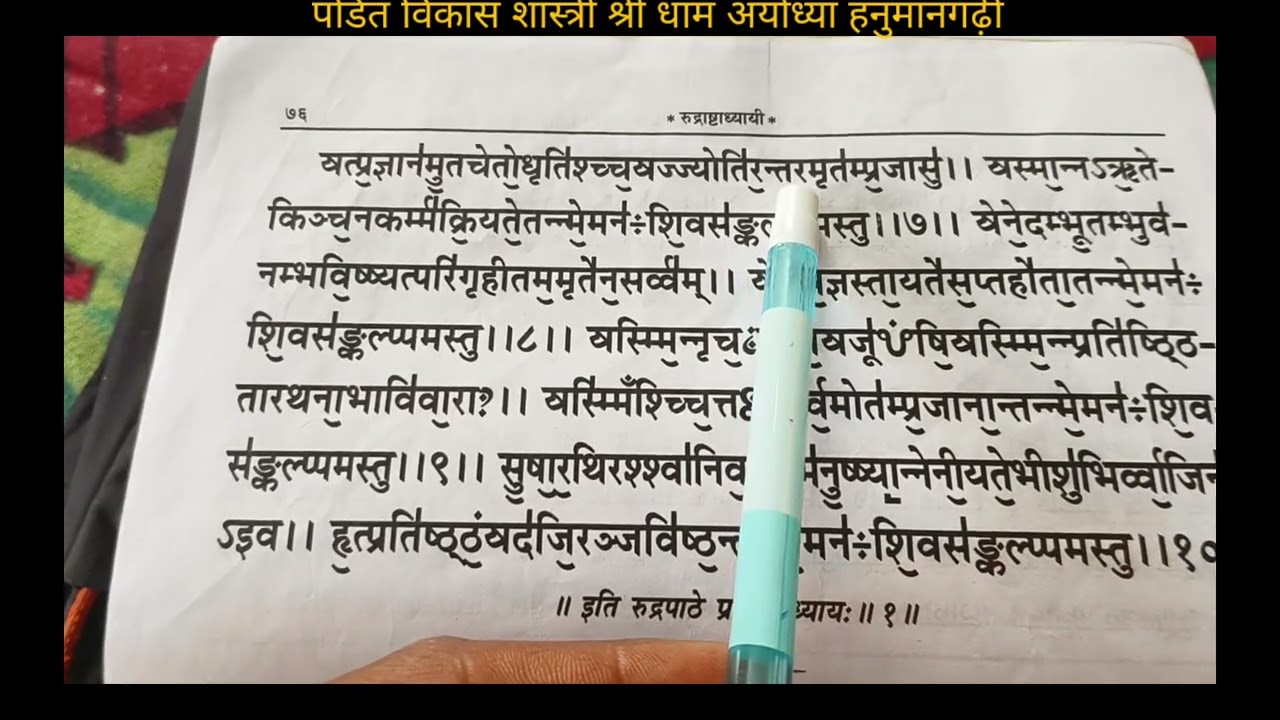 पंडित विकास शास्त्री श्री धाम अयोध्या हनुमानगढ़ी
७६
* रुद्राष्टाध्यायी *
यत्प्र॒ज्ञान॑मु॒तचेतो॒धृति॑श्च्च॒यज्ज्योति॑र॒न्तरमृत॑म्प्र॒जासु॑।। यस्मा॒न्नऽऋ॒ते-
किञ्च॒नकर्म्म॑क्रि॒यते॒तन्न्मे॒मन॑ः शि॒वस॑ङ्क मस्तु।।७।। येने॒दम्भू॒तम्भुव॑-
नम्भवि॒ष्ष्यत्परि॑गृहीतम॒मृतै॑न॒सर्व्व॑म्।। ज्ञस्ता॒यतै॑स॒प्तहौ॑ता॒तन्न्मे॒मन॑ः
शि॒वस॑ङ्कल्प्पमस्तु।।८।। यस्म्मि॒न्नृच॒ यजू॑ᳪषि॒यस्म्मि॒न्न्प्रति॑ष्ठ्ठि-
तारथना॒भावि॑वा॒राः।। यस्म्मिँ॑श्च्चि॒त्त र्व॒मोत॑म्प्र॒जाना॒न्तन्न्मे॒मन॑ः शि॒व
स॑ङ्कल्प्पमस्तु।।९।। सु॒षा॒र॒थिरश्श्वा॑निव॒ नु॒ष्ष्या॒न्नेनी॒यते॒भीशु॑भिर्व्वा॒जिन
ऽइव।। हृ॒त्प्रति॑ष्ठ्ठं॒यद॑जि॒रञ्जवि॑ष्ठ॒न्त मन॑ः शि॒वस॑ङ्कल्प्पमस्तु।।१०
॥ इति रुद्रपाठे प्र ध्यायः॥ १॥